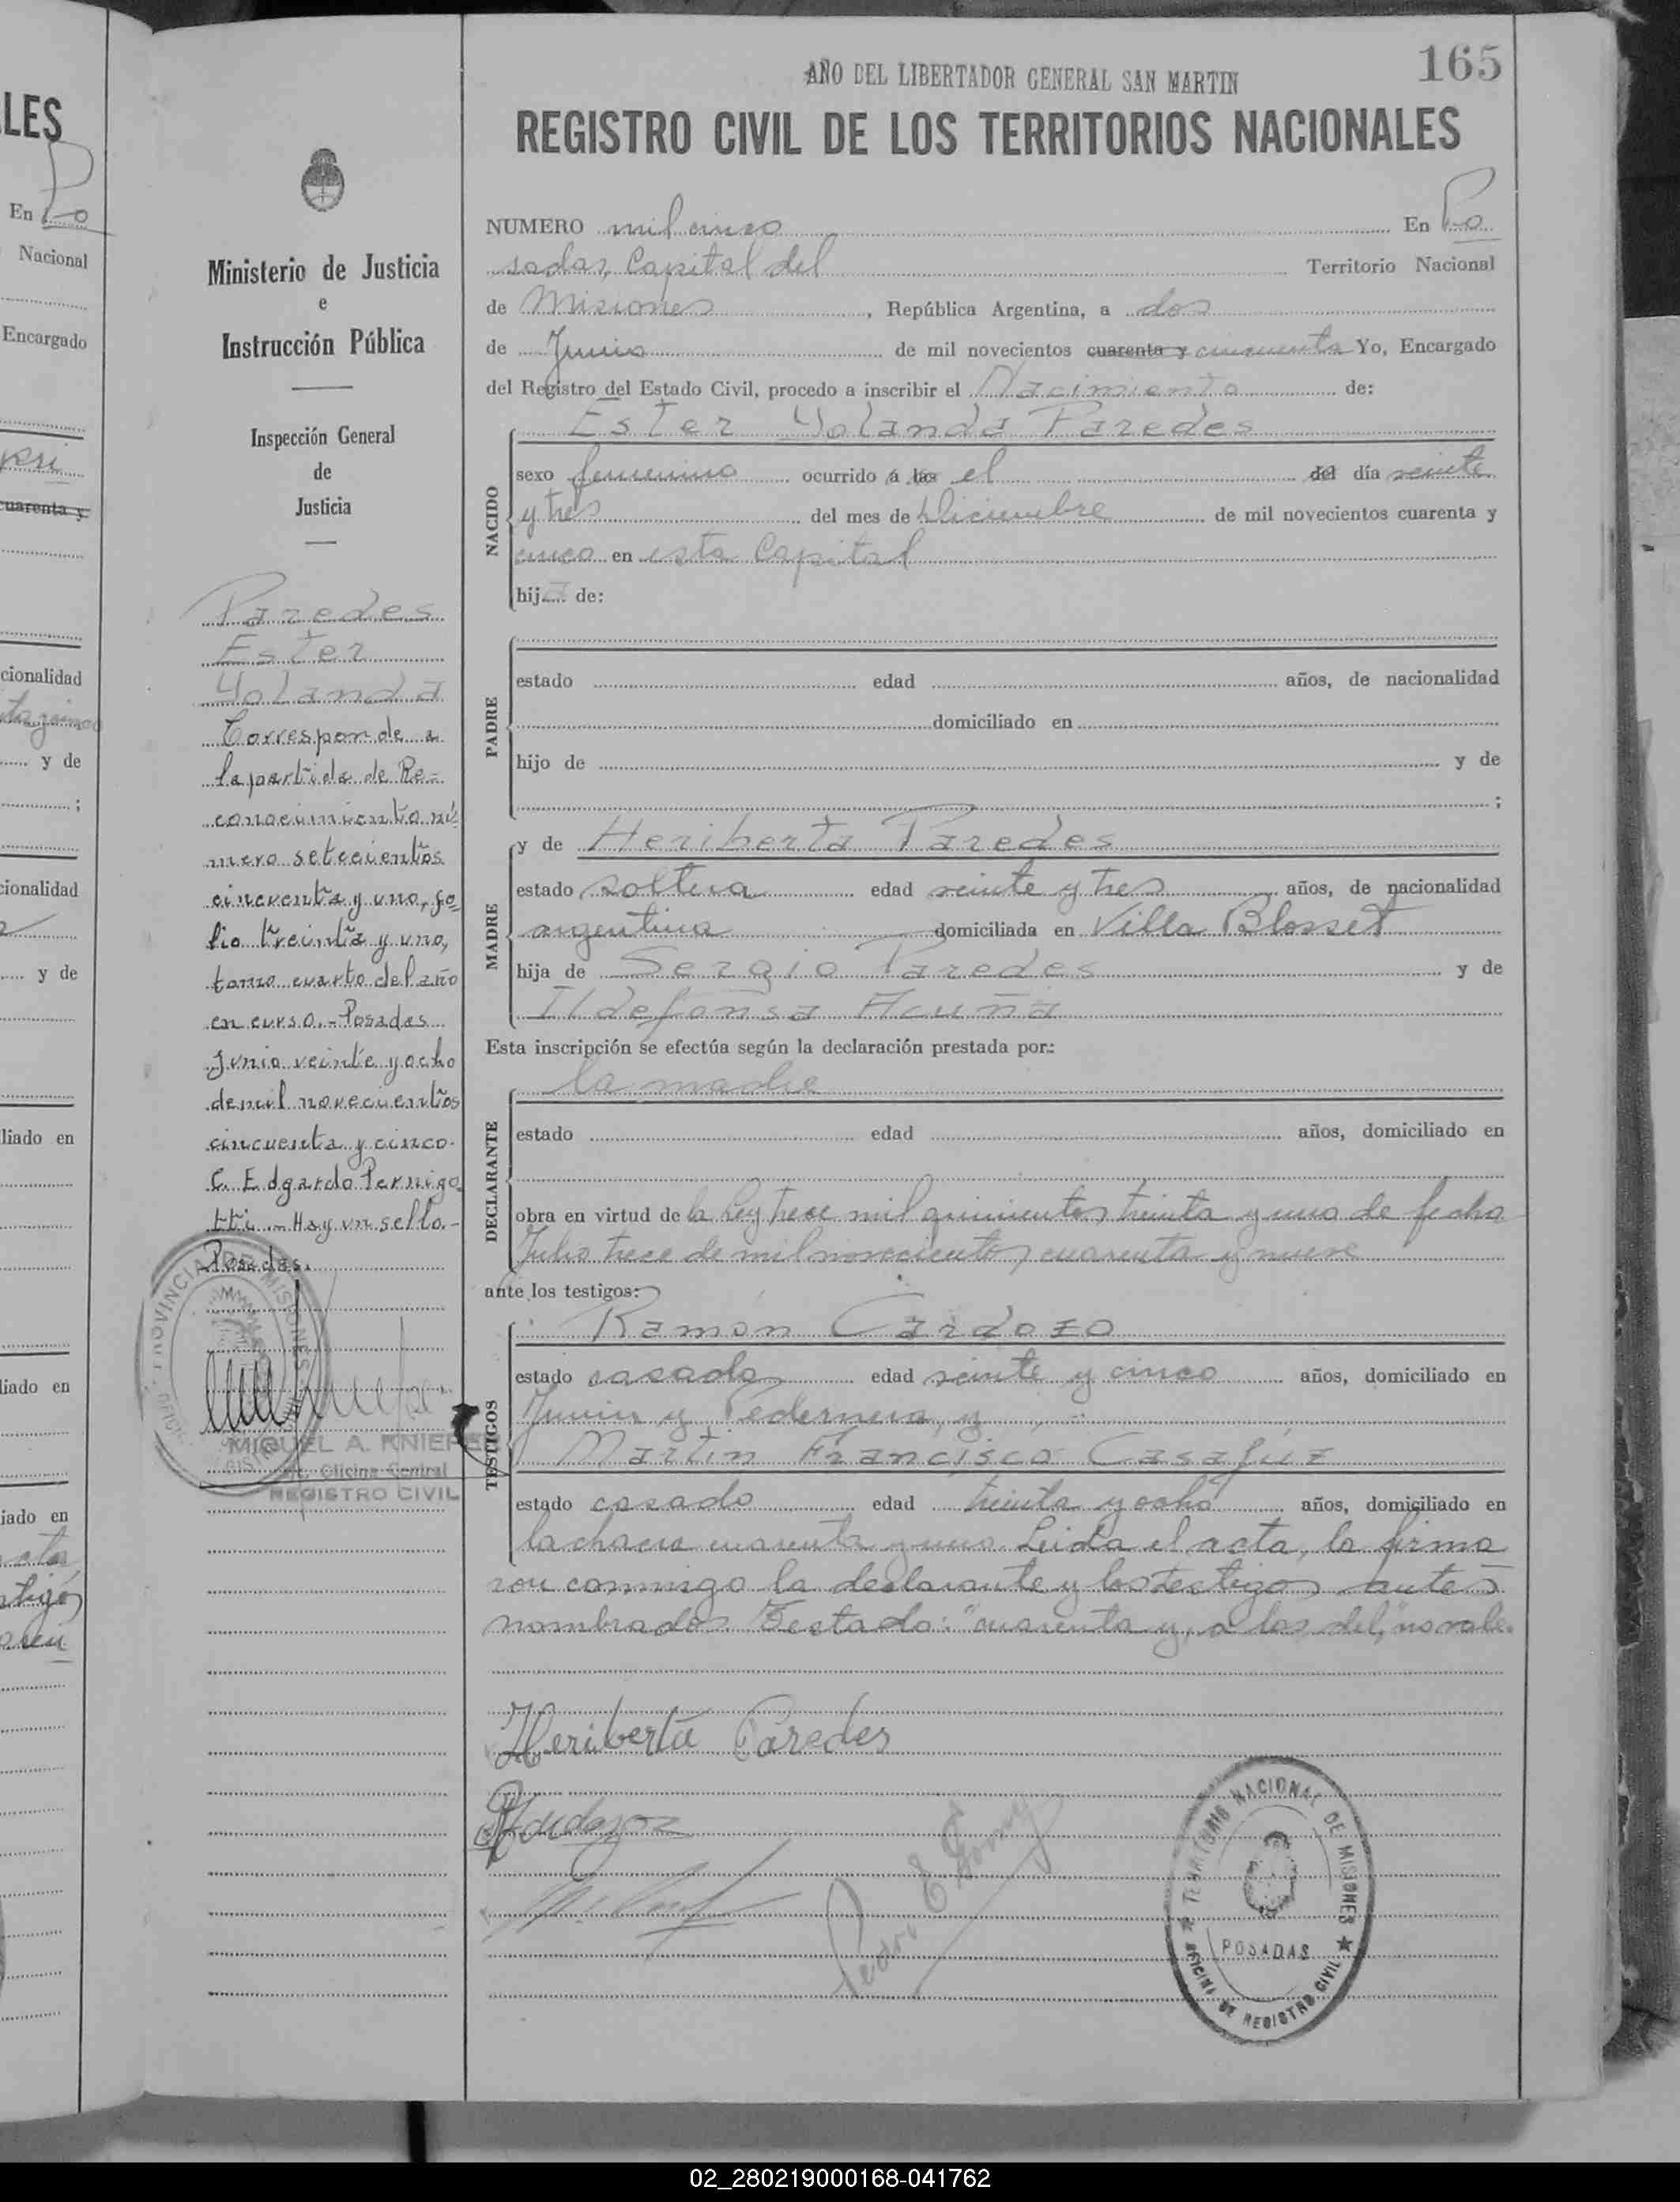 LES
En Po
Nacional
Encargado
cuarenta y
cionalidad
y de
;
cionalidad
y de
liado en
liado en
iado en
AÑO DEL LIBERTADOR GENERAL SAN MARTIN
165
REGISTRO CIVIL DE LOS TERRITORIOS NACIONALES
Ministerio de Justicia
e
Instrucción Pública
Inspección General
de
Justicia
Paredes
Ester
Yolanda
Corresponde a
la partida de Re-
conocimiento nú-
mero setecientos
cincuenta y uno, fo-
lio treinta y uno,
tomo cuarto del año
en curso.- Posadas
Junio veinte y ocho
de mil novecientos
cincuenta y cinco.
C. Edgardo Pernigo
tti.- Hay un sello.-
Posadas.
PROVINCIA DE MISIONES
MIGUEL A. KNIEPE
Oficina Central
REGISTRO CIVIL
NUMERO mil cinco En Po
sadas, Capital del Territorio Nacional
de Misiones, República Argentina, a dos
de Junio de mil novecientos cuarenta y cincuenta Yo, Encargado
del Registro del Estado Civil, procedo a inscribir el Nacimiento de:
NACIDO
Ester Yolanda Paredes
sexo femenino ocurrido á las el del día veinte
y tres del mes de Diciembre de mil novecientos cuarenta y
cinco en esta Capital
hija de:
PADRE
estado edad años, de nacionalidad
domiciliado en
hijo de y de
;
MADRE
y de Heriberta Paredes
estado soltera edad veinte y tres años, de nacionalidad
argentina domiciliada en Villa Blosset
hija de Sergio Paredes y de
Ildefonsa Acuña
Esta inscripción se efectúa según la declaración prestada por:
DECLARANTE
la madre
estado edad años, domiciliado en
obra en virtud de la Ley trece mil quinientos treinta y uno de fecha
Julio trece de mil novecientos cuarenta y nueve
ante los testigos:
TESTIGOS
Ramón Cardozo
estado casado edad veinte y cinco años, domiciliado en
Junin y Pedernera, y
Martin Francisco Casafúz
estado casado edad treinta y ocho años, domiciliado en
la chacra cuarenta y uno. Leida el acta, la firma
ron conmigo la declarante y los testigos antes
nombrados Testado: "cuarenta y, a las del," no vale.
Heriberta Paredes
TERRITORIO NACIONAL DE MISIONES
POSADAS
OFICINA DE REGISTRO CIVIL
02_280219000168-041762